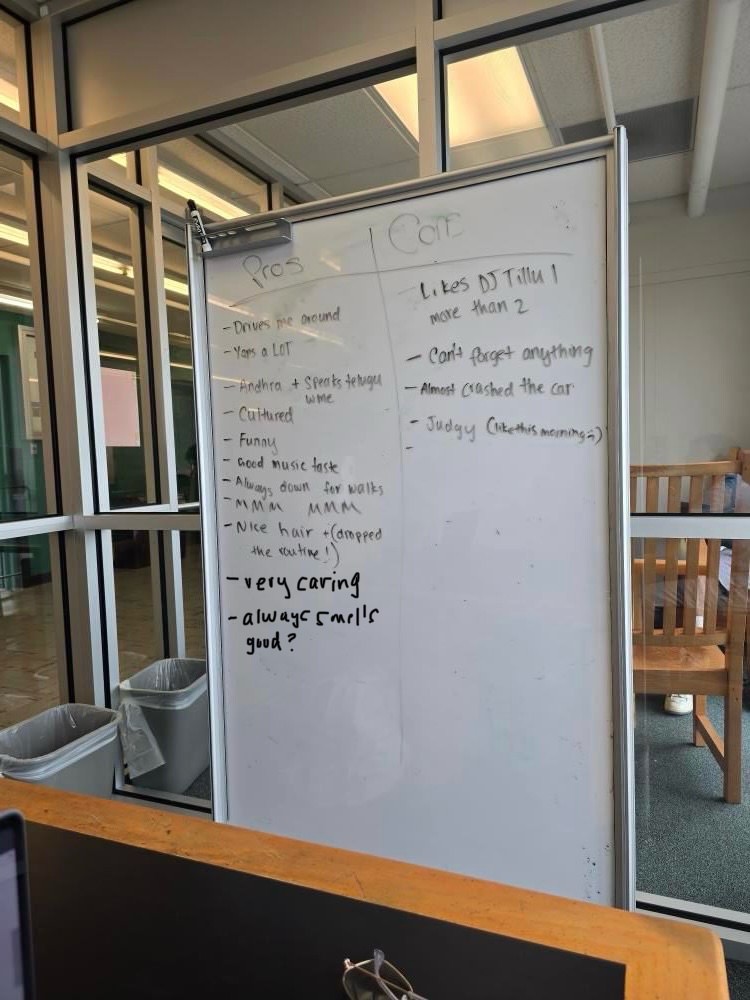 Pros
- Drives me around
- Yaps a LOT
- Andhra + Speaks telugu
wme
- Cultured
- Funny
- Good music taste
- Always down for walks
- MMM MMM
- Nice hair + (dropped
the routine!)
- very caring
- always smells
good?
Cons
Likes DJ Tillu 1
more than 2
- Can't forget anything
- Almost crashed the car
- Judgy (like this morning
-